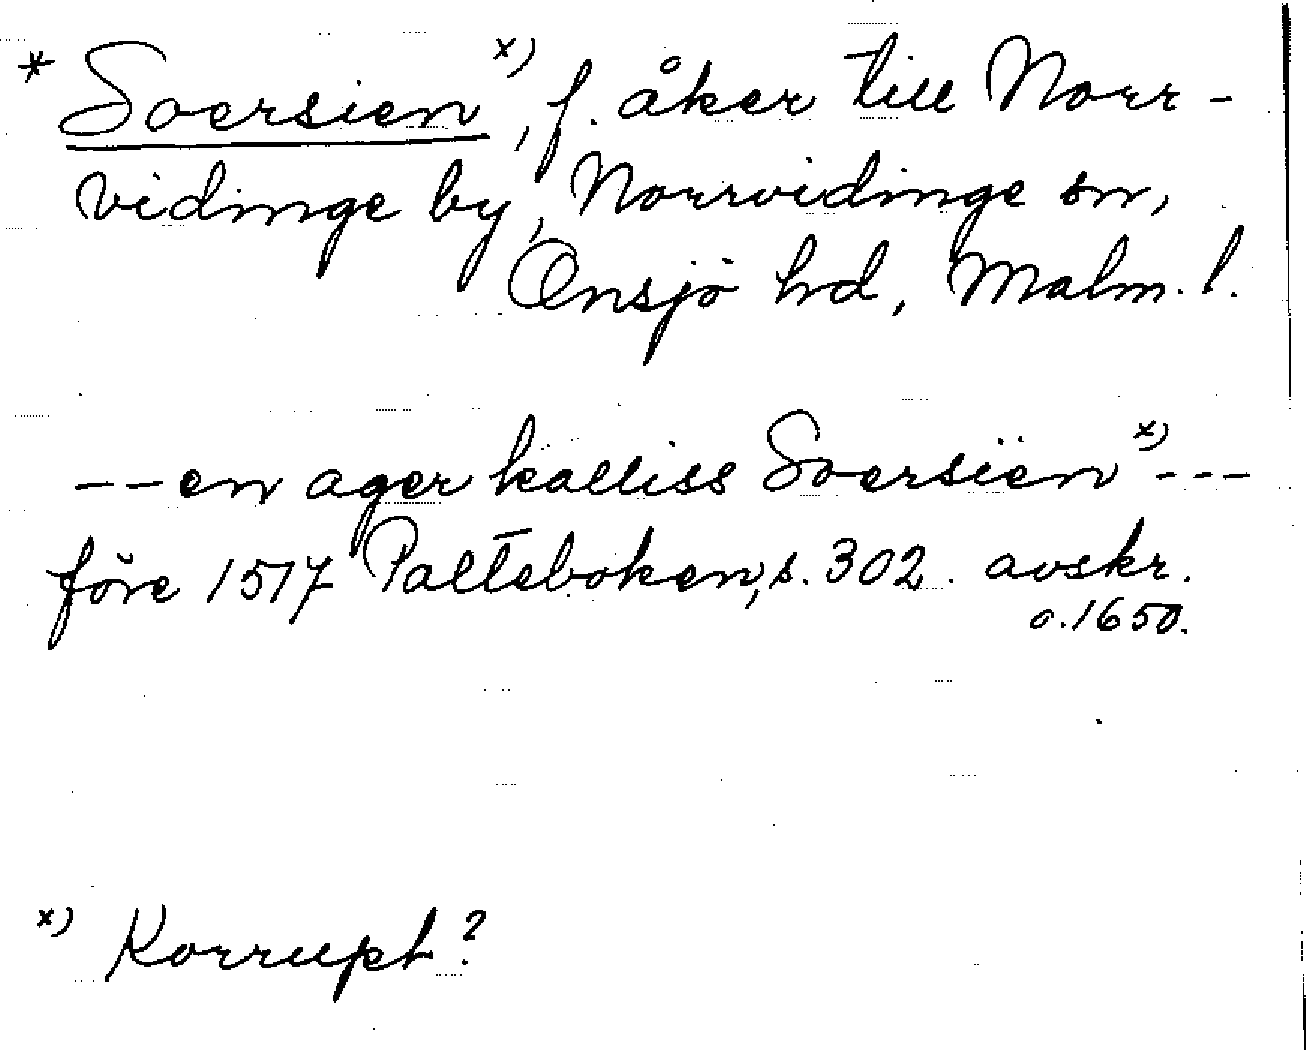 * Soersien x), f. åker till Norr-
vidinge by, Norrvidinge sn,
Onsjö hd, Malm. l.
-- en ager kalliss Soersien x) ---
före 1517 Palteboken, s. 302. avskr.
o. 1650.
x) Korrupt?